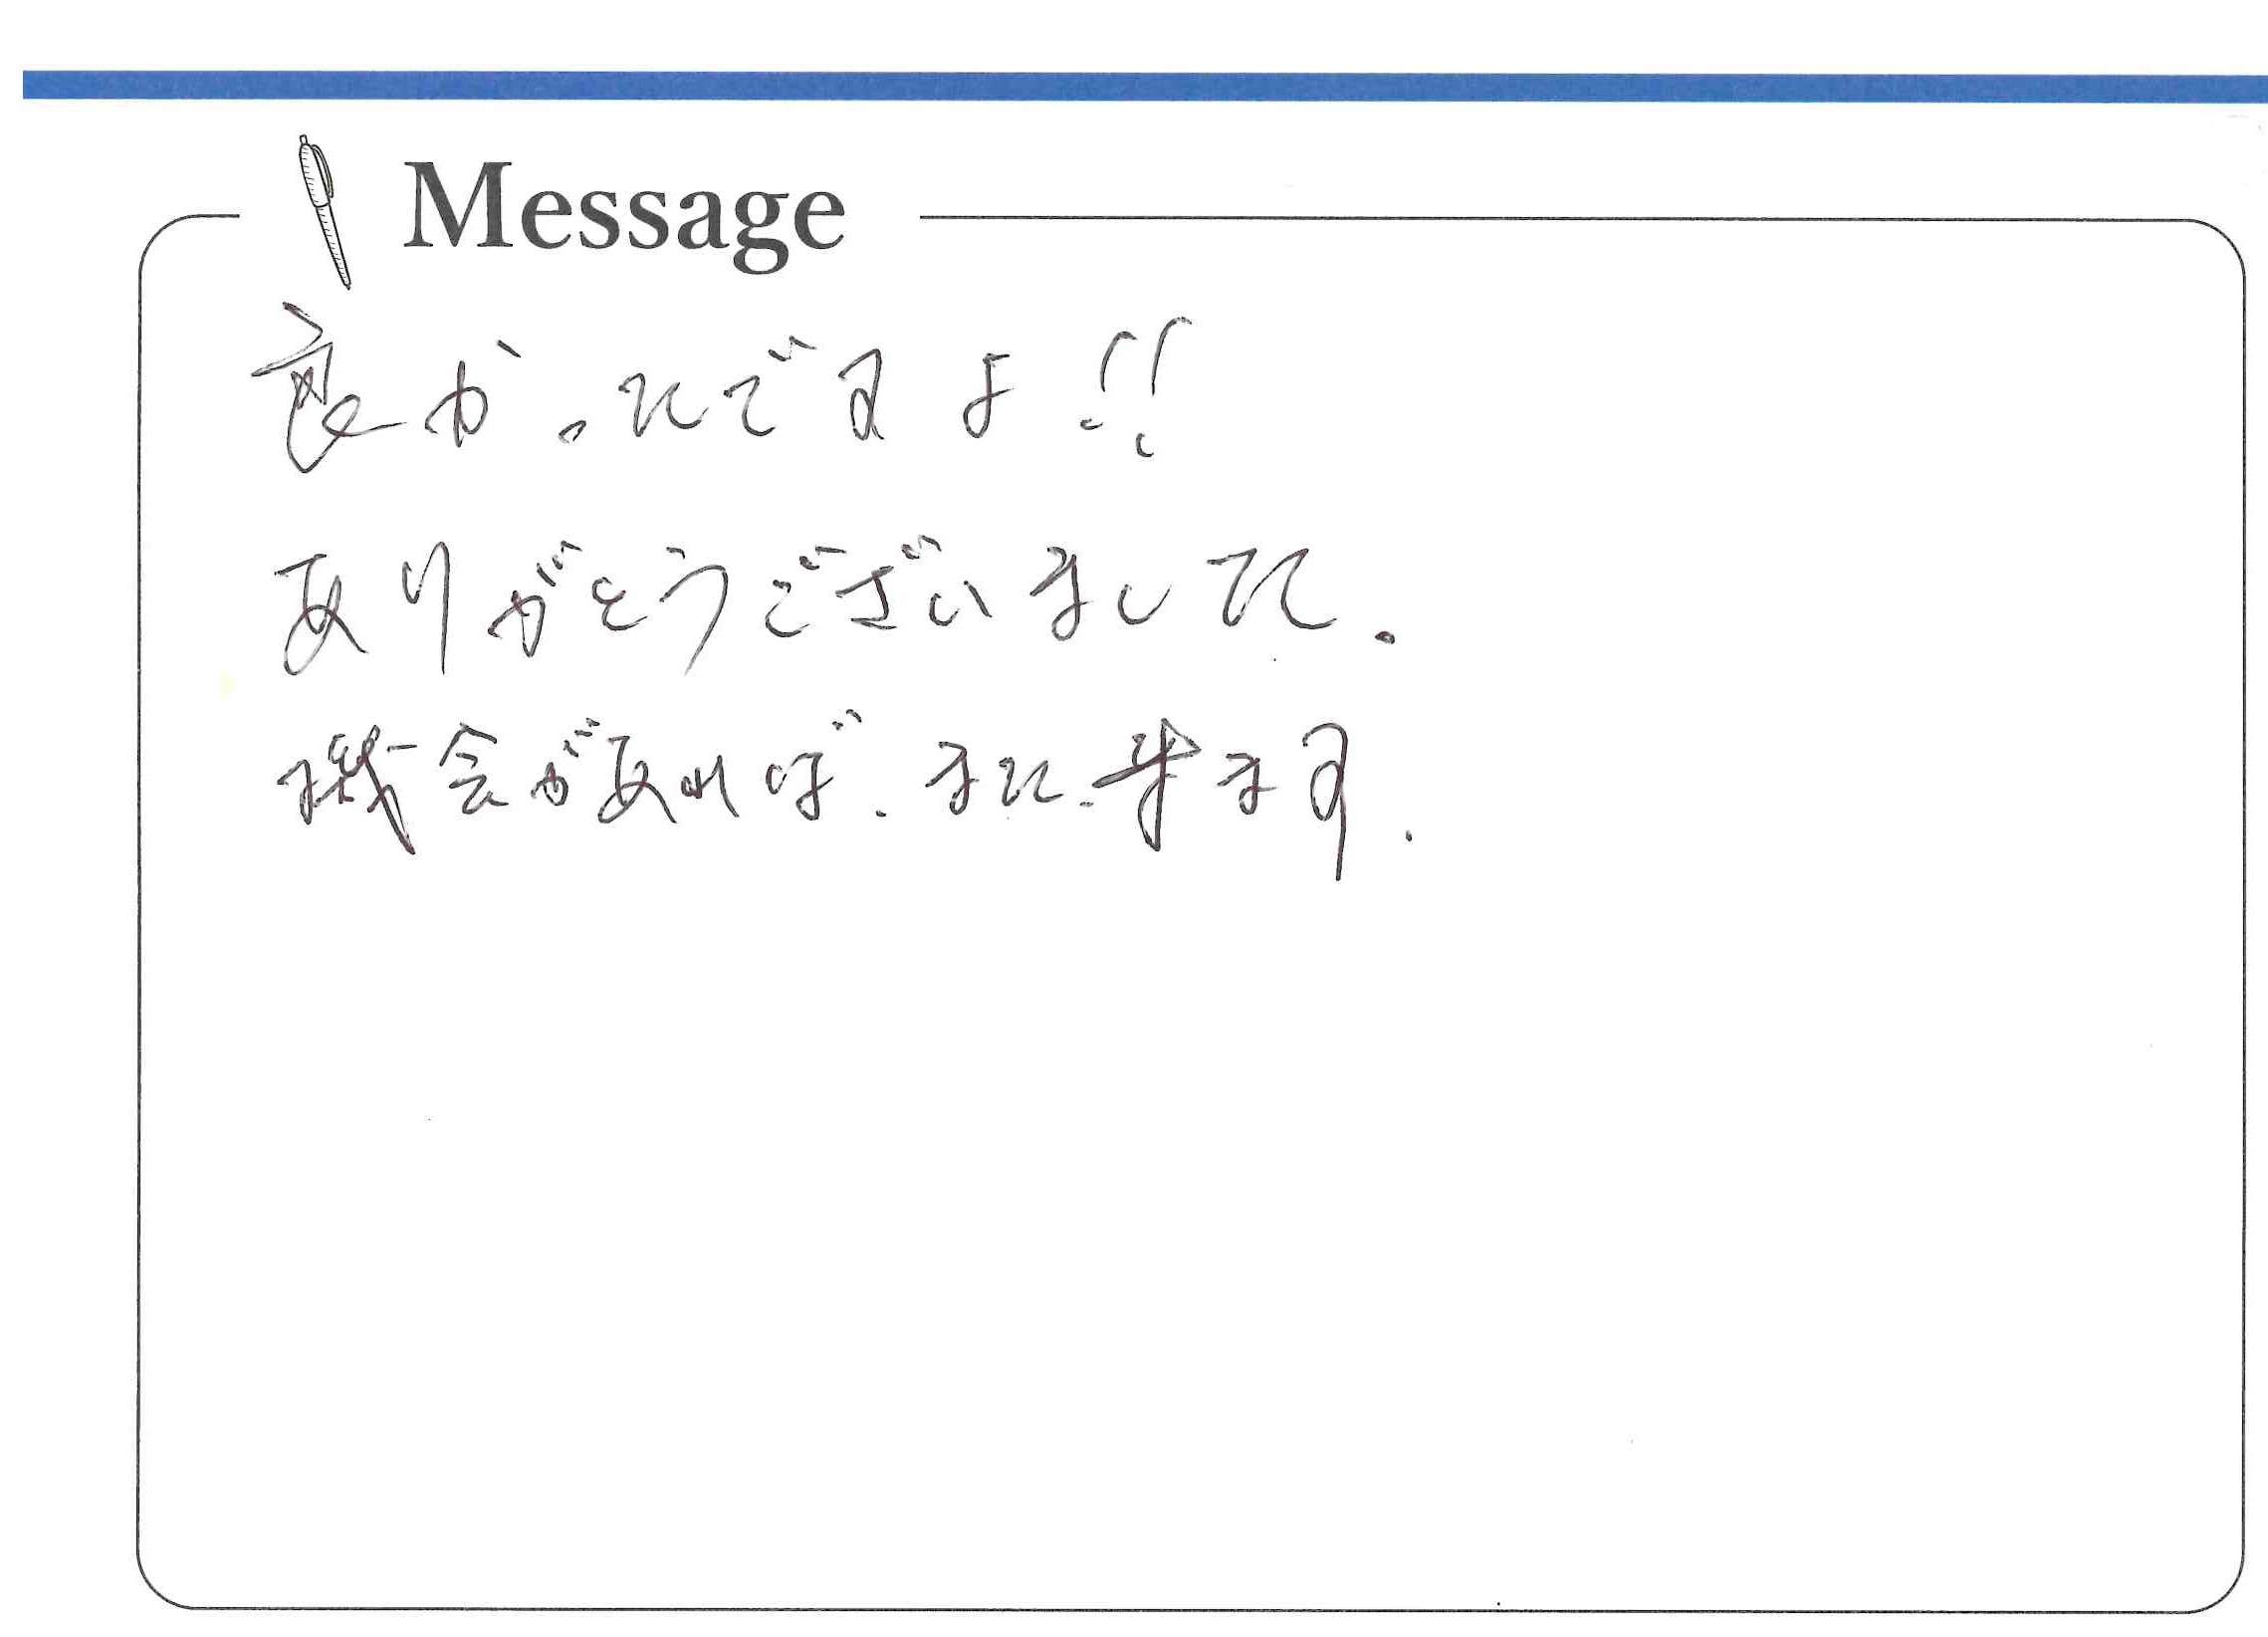 Message
良かったですよ!!
ありがとうございました.
機会があれば.また.来ます.